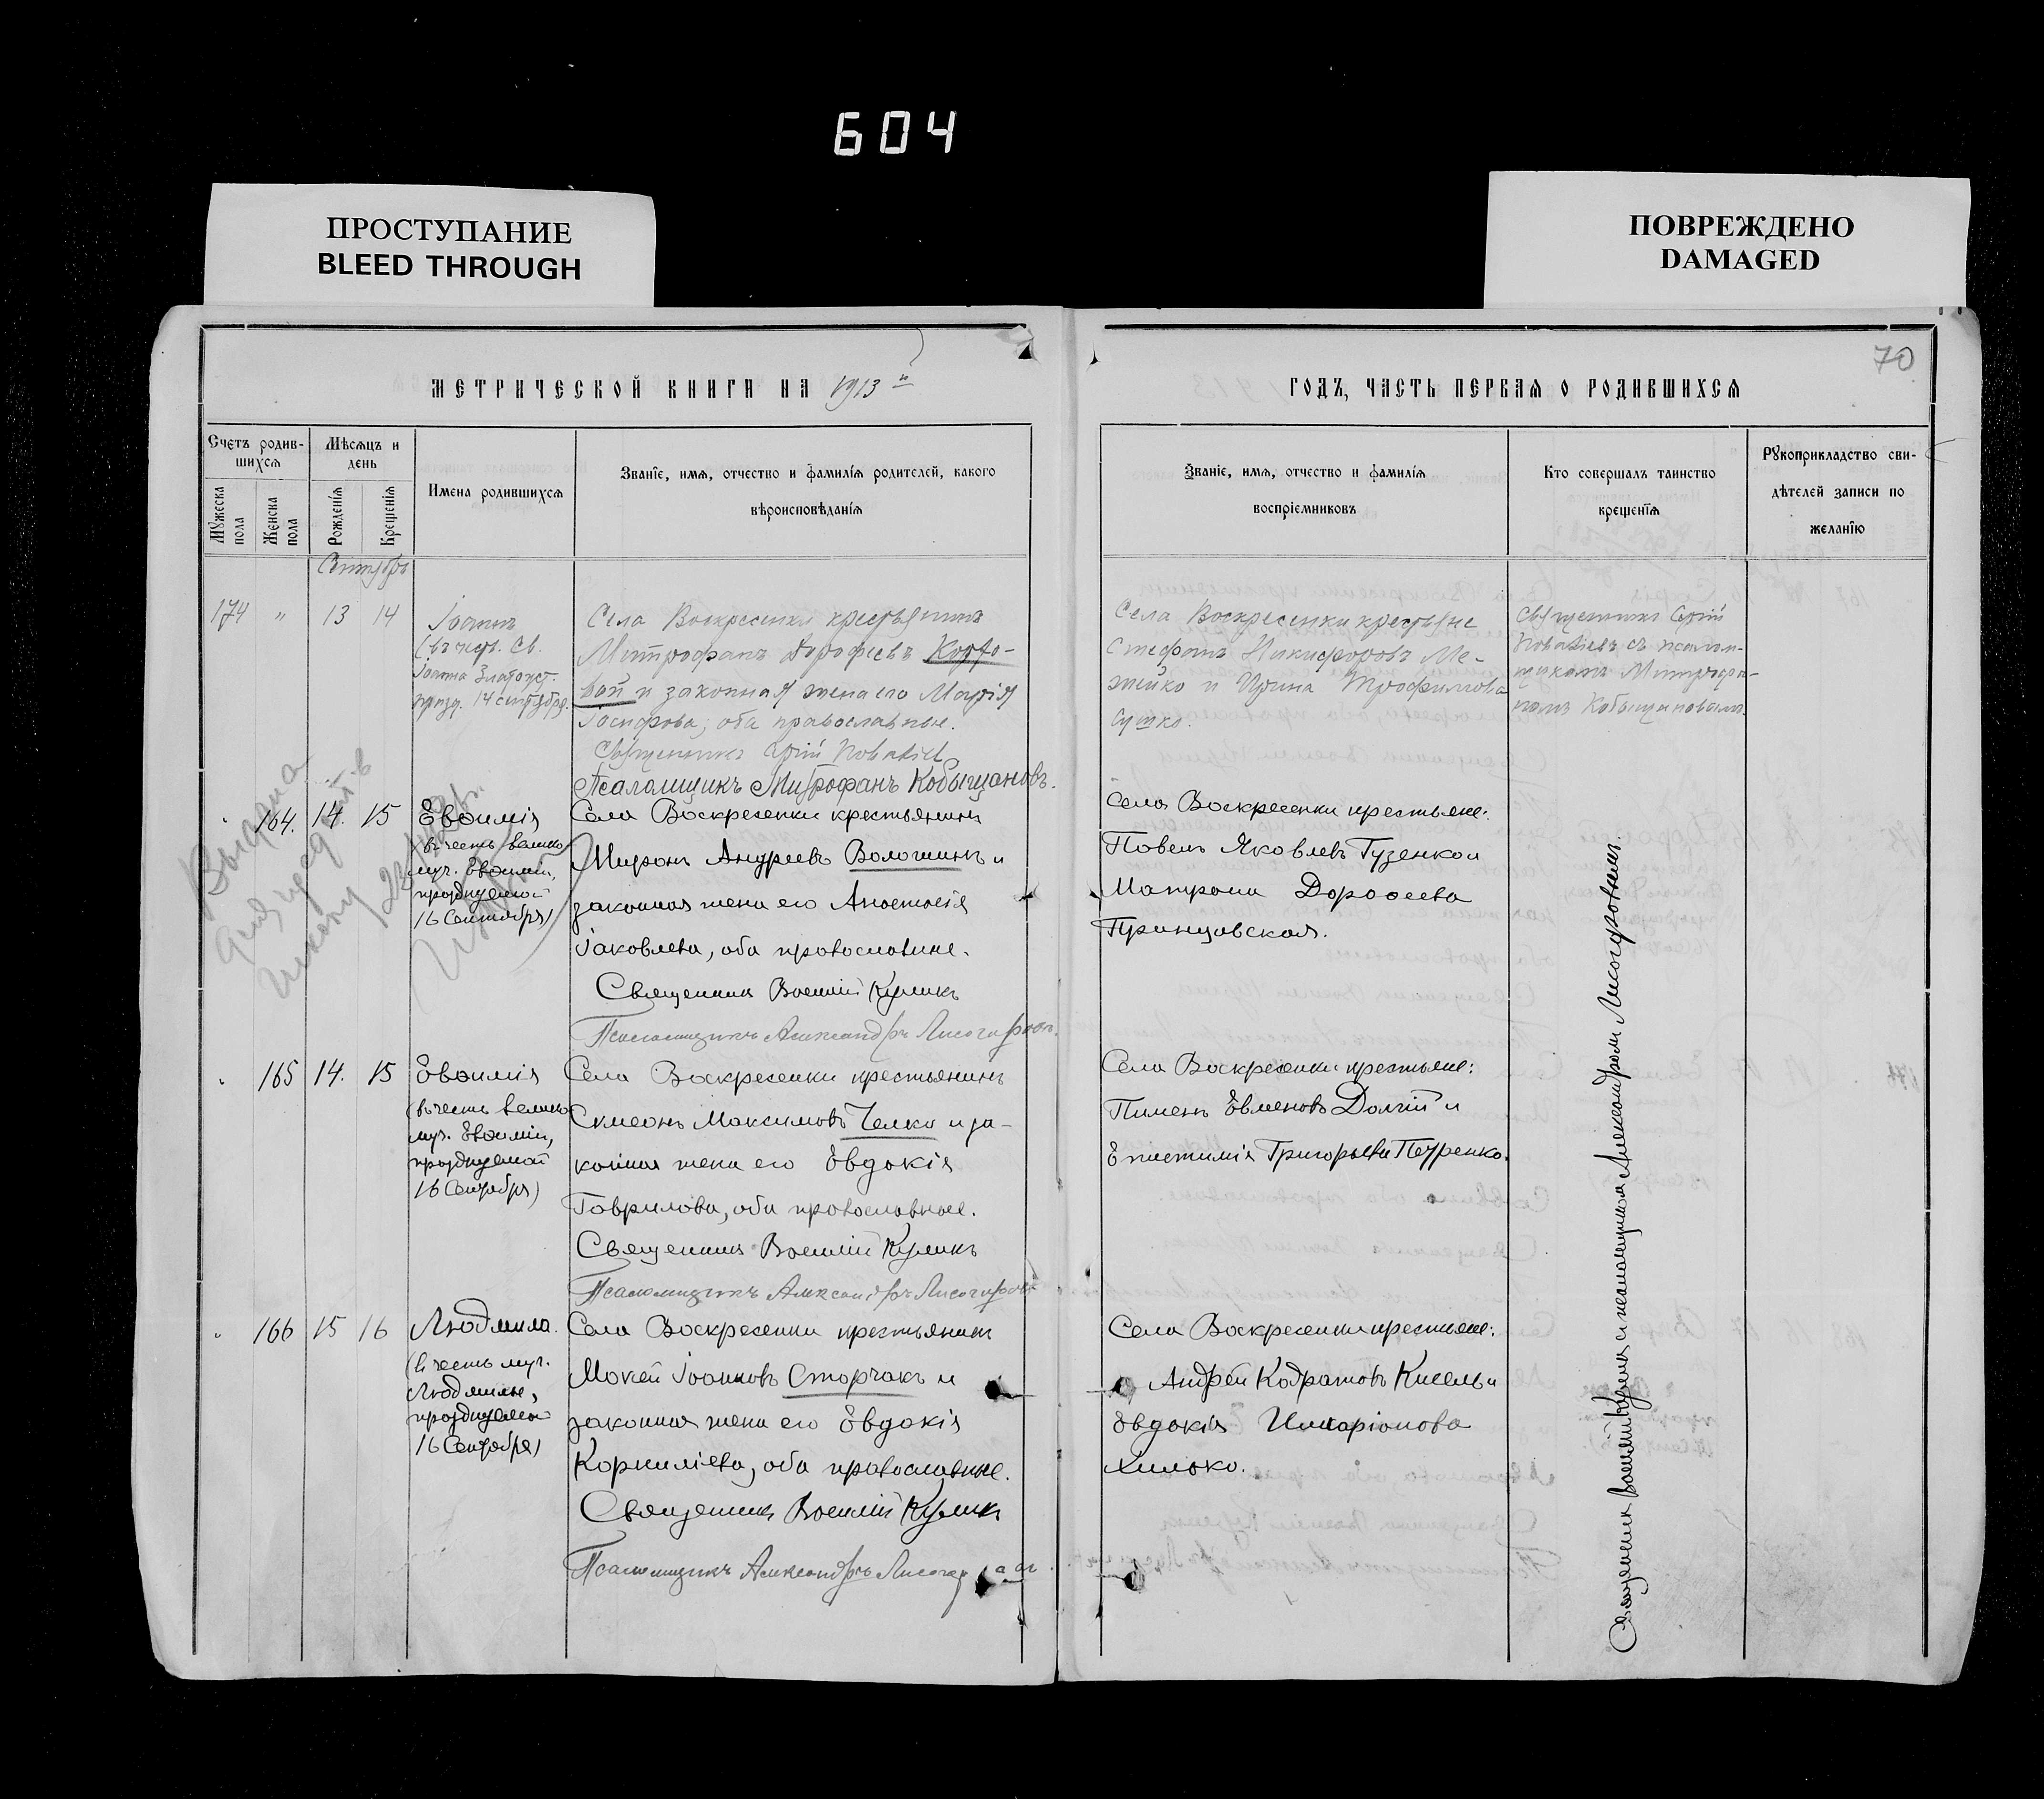 604
ПРОСТУПАНИЕ
BLEED THROUGH
ПОВРЕЖДЕНО
DAMAGED
70
МЕТРИЧЕСКОЙ КНИГИ НА 1913 й
ГОДЪ, ЧАСТЬ ПЕРВАЯ О РОДИВШИХСЯ
Счетъ родив-
шихся
Мѣсяцъ и
день
Мужеска
пола
Женска
пола
Рожденія
Крещенія
Имена родившихся
Званіе, имя, отчество и фамилія родителей, какого
вѣроисповѣданія
Званіе, имя, отчество и фамилія
воспріемниковъ
Кто совершалъ таинство
крещенія
Рукоприкладство сви-
дѣтелей записи по
желанію
Сентябрь
174 " 13 14
Іоаннъ
(въ честь Св.
Іоанна Златоуст.
празд. 14 сентября.
Села Воскресенки крестьянинъ
Митрофанъ Дорофеевъ
и законная жена его Марія
Іосифова, оба православные.
Священникъ
Псаломщикъ Митрофанъ Кобыщановъ.
Села Воскресенки крестьяне
Стефанъ Никифоровъ Ме-
жейко и Ирина Трофимова
Сушко.
Священникъ
съ псалом-
щикомъ Митрофа-
номъ Кобыщановымъ.
164. 14. 15
Евѳимія
(въ честь велико
муч. Евѳиміи,
празднуемой
16 Сентября)
Села Воскресенки крестьянинъ
Миронъ Андреевъ Волошинъ и
законная жена его Анастасія
Іаковлева, оба православные.
Священникъ Василій Куликъ
Псаломщикъ Александръ Лисогоровъ.
Села Воскресенки крестьяне:
Павелъ Яковлевъ Гузенко и
Матрона Дороѳеева
165 14. 15
Евѳимія
(въ честь велико
муч. Евѳиміи,
празднуемой
16 Сентября)
Села Воскресенки крестьянинъ
Симеонъ Максимовъ Челко и за-
конная жена его Евдокія
Гаврилова, оба православные.
Священникъ Василій Куликъ
Псаломщикъ Александръ Лисогоровъ
Села Воскресенки крестьяне:
Пименъ Евменовъ Долгій и
Епистимія Григорьева Петренко.
166 15 16
Людмила.
(въ честь муч.
Людмилы,
празднуемой
16 Сентября)
Села Воскресенки крестьянинъ
Мокей Іоанновъ Сторчакъ и
законная жена его Евдокія
Корниліева, оба православные.
Священникъ Василій Куликъ
Псаломщикъ Александръ
Села Воскресенки крестьяне:
Андрей Кодратовъ Кисель и
Евдокія Иларіонова
Хилько.
Священникъ Василій Куликъ съ псаломщикомъ Александромъ Лисогоровымъ.